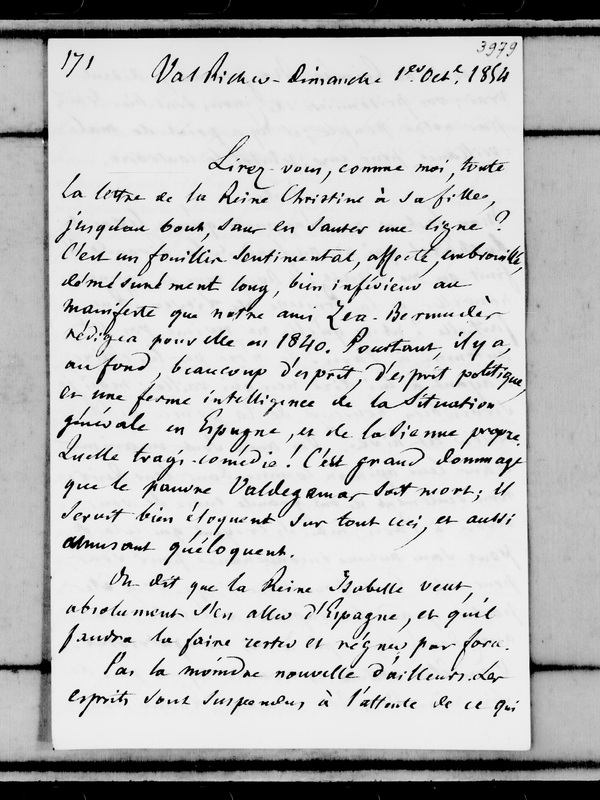 3979
171 Val Richer - Dimanche 1er Octe. 1854
Lirez-vous, comme moi, toute
la lettre de la Reine Christine à sa fille,
jusqu'au bout, sans en sauter une ligne ?
C'est un fouillis sentimental, affecté, embrouillé,
démésurément long, bien inférieur au
manifeste que notre ami Zéa-Bermudèz
rédigea pour elle en 1840. Pourtant, il y a,
au fond, beaucoup d'esprit, d'esprit politique,
et une ferme intelligence de la situation
générale en Espagne, et de la sienne propre.
Quelle tragi-comédie ! C'est grand dommage
que le pauvre Valdegamas soit mort ; il
serait bien éloquent sur tout ceci, et aussi
amusant qu'éloquent.
On dit que la Reine Isabelle veut
absolument s'en aller d'Espagne, et qu'il
faudra la faire rester et régner par force.
Pas la moindre nouvelle d'ailleurs. Les
esprits sont suspendus à l'attente de ce qui